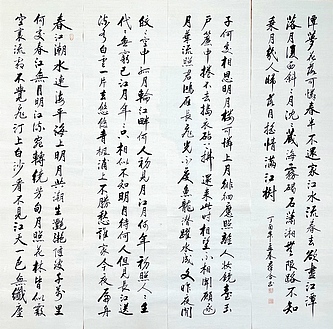 春江潮水連海平海上明月共潮生灧灧隨波千萬里
何處春江無月明江流宛轉繞芳甸月照花林皆似霰
空裏流霜不覺飛汀上白沙看不見江天一色無纖塵
皎々空中孤月輪江畔何人初見月江月何年初照人人生
代々無窮已江月年々只相似不知明月待何人但見長江送
流水白雲一片去悠悠青楓浦上不勝愁誰家今夜扁舟
子何處相思明月樓可憐樓上月徘徊應照離人妝鏡臺玉
戶簾中捲不去擣衣砧上拂還來此時相望不相聞願逐
月華流照君鴻雁長飛光不度魚龍潛躍水成文昨夜閒
潭夢花落可憐春半不還家江水流春去欲盡江潭
落月復西斜斜月沉々藏海霧碣石瀟湘無限路不知
乘月幾人歸落月搖情滿江樹
丁酉年